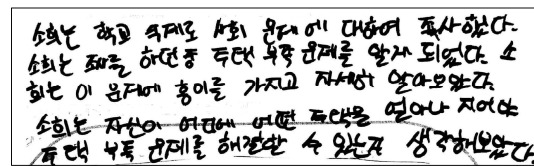 소희는 학교 숙제로 사회 문제에 대하여 조사했다.
소희는 조사를 하던 중 주택 부족 문제를 알게 되었다. 소
희는 이 문제에 흥미를 가지고 자세히 알아보았다.
소희는 자신이 어디에 어떤 주택을 얼마나 지어야
주택 부족 문제를 해결할 수 있는지 생각해보았다